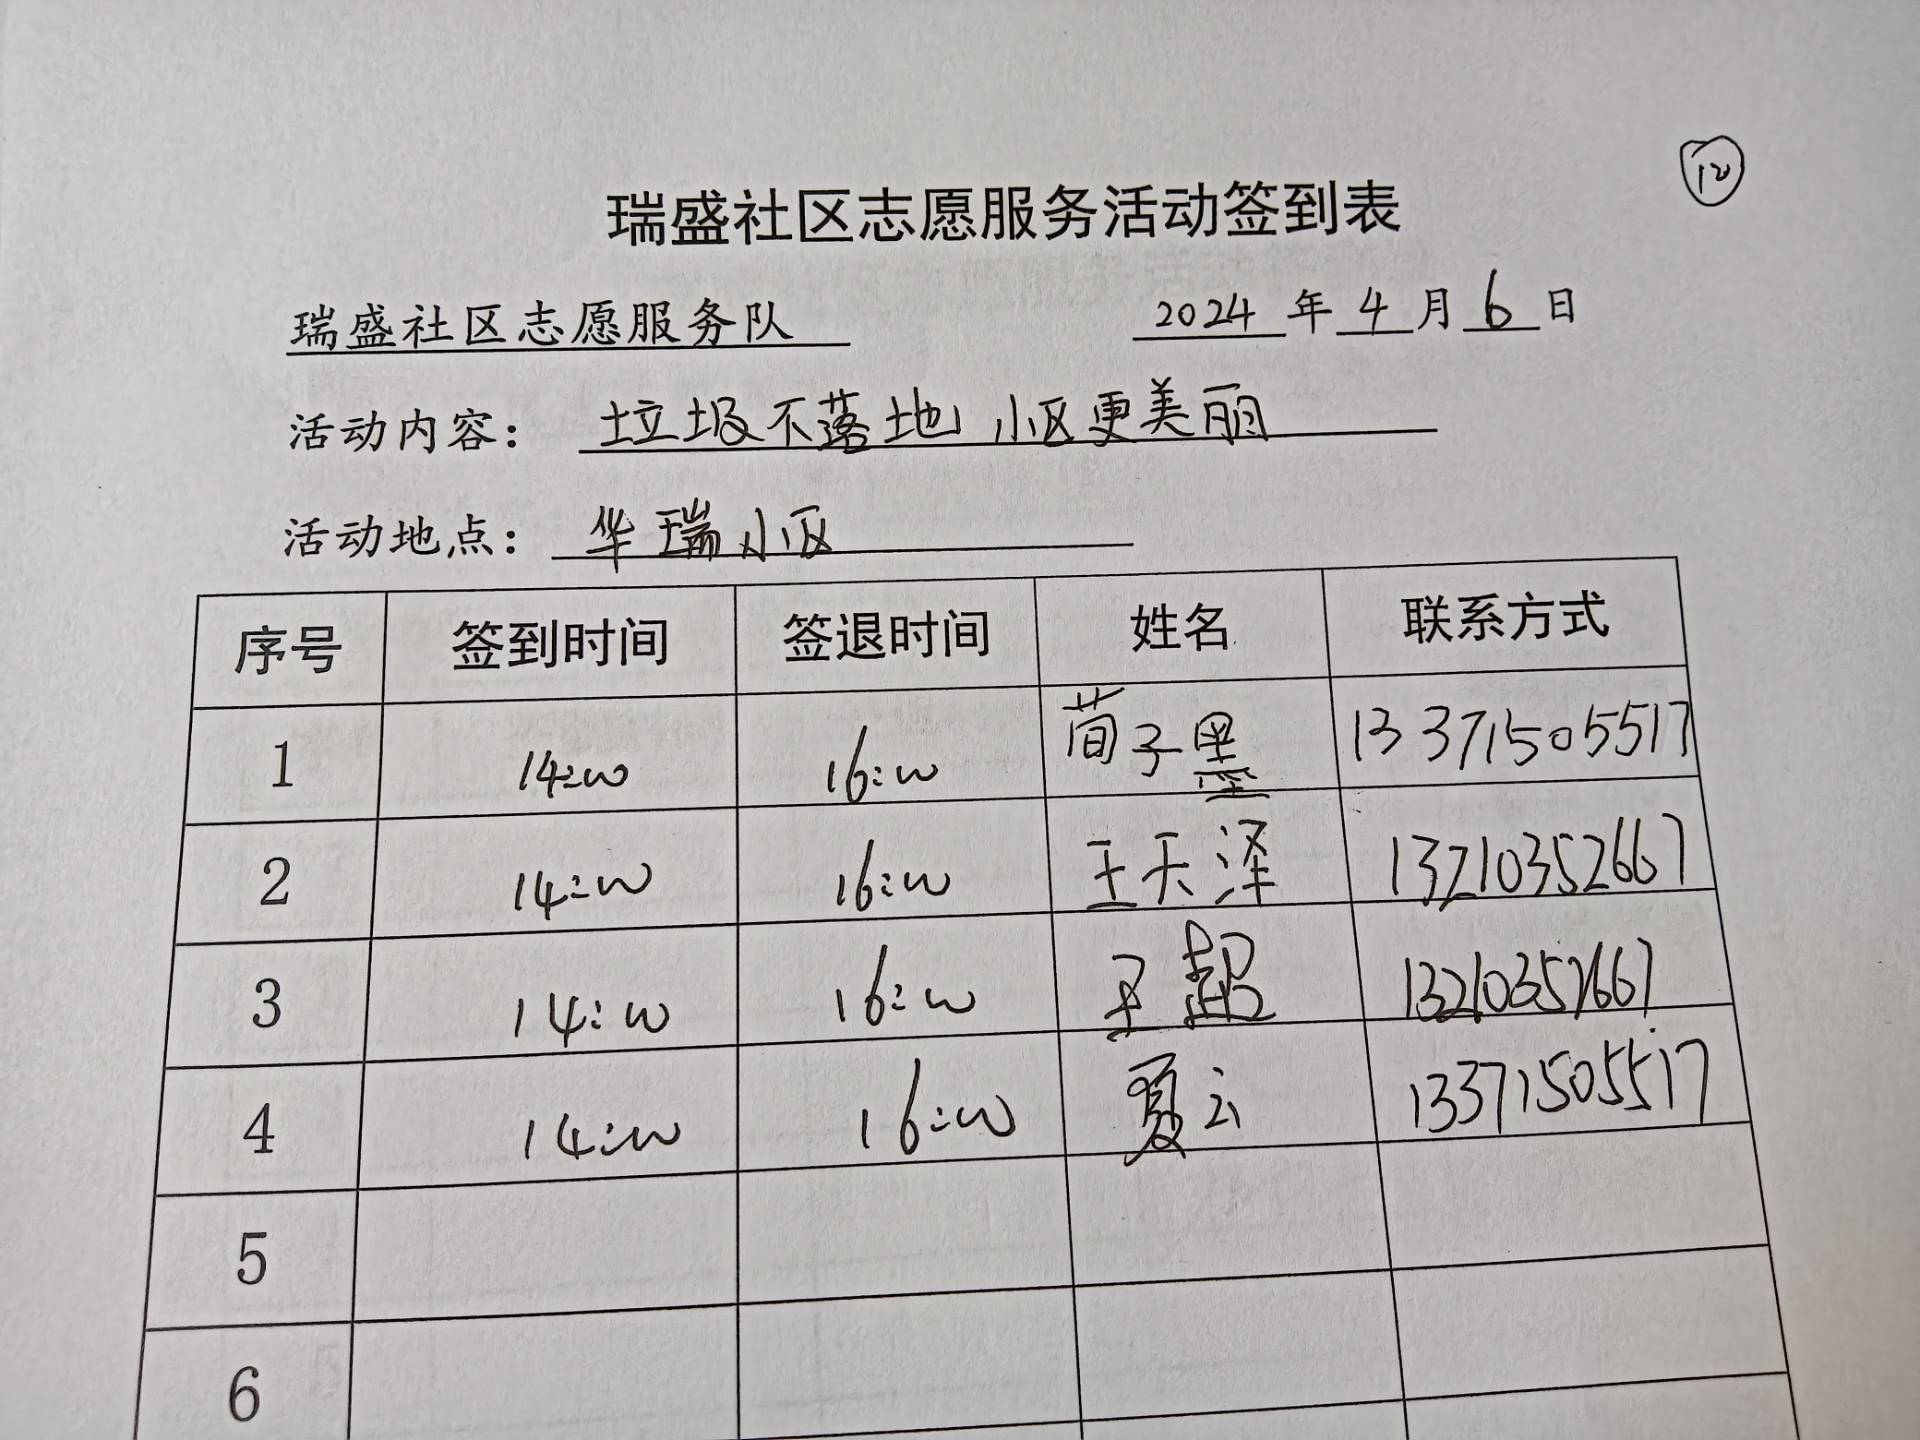 ⑫
瑞盛社区志愿服务活动签到表
瑞盛社区志愿服务队 2024 年 4 月 6 日
活动内容： 垃圾不落地 小区更美丽
活动地点： 华瑞小区
序号 签到时间 签退时间 姓名 联系方式
1 14:00 16:00 荀子墨 13371505517
2 14:00 16:00 王天泽 13210352667
3 14:00 16:00 王超 13210352667
4 14:00 16:00 夏云 13371505517
5
6